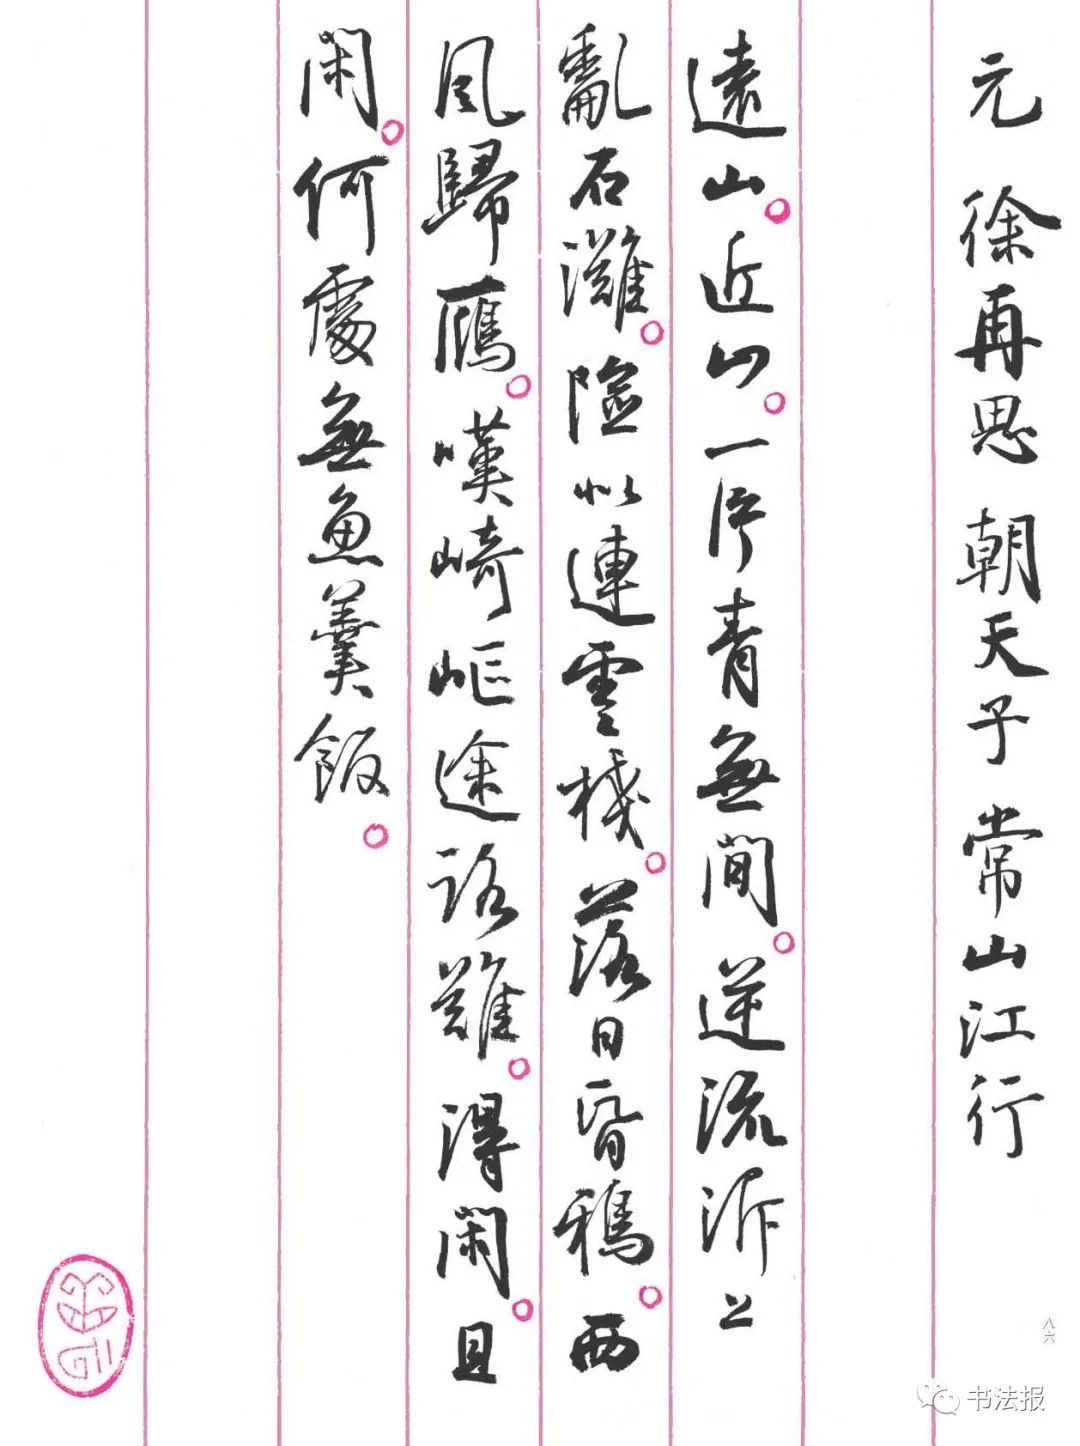 元 徐再思 朝天子 常山江行
遠山。近山。一片青無間。逆流泝上
亂石灘。險似連雲棧。落日昏鴉。西
風歸鴈。嘆崎嶇途路難。得閑。且
閑。何處無魚羹飯。
八六
书法报